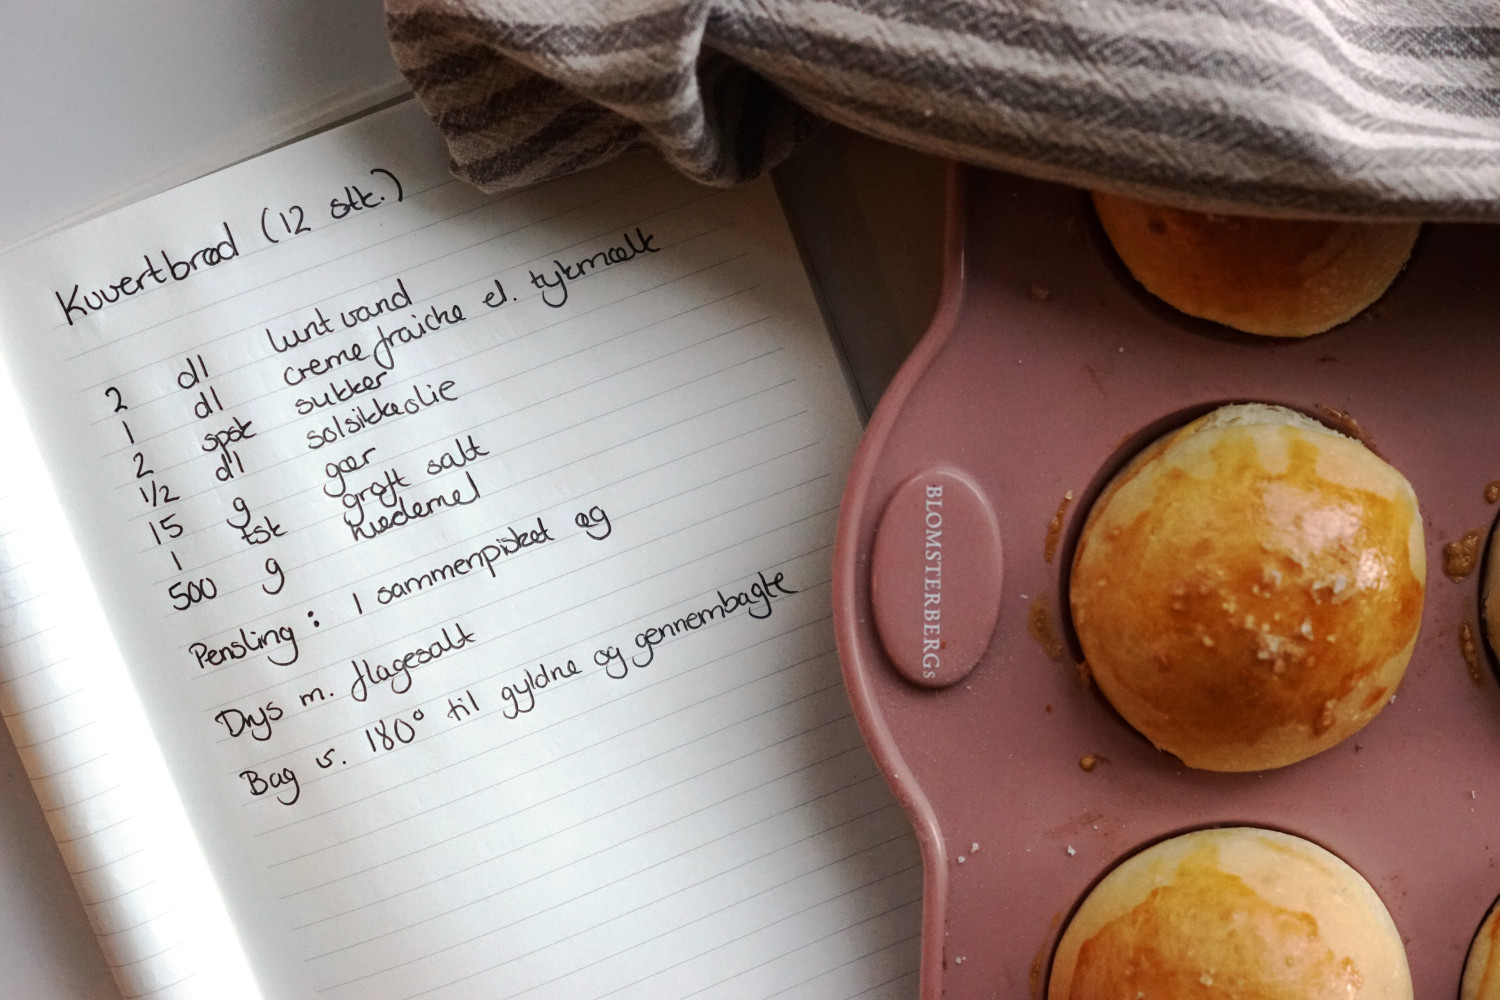 Kuvertbrød (12 stk.)
2 dl lunt vand
1 dl creme fraiche el. tykmælk
2 spsk sukker
1/2 dl solsikkeolie
15 g gær
1 tsk groft salt
500 g hvedemel
Pensling: 1 sammenpisket æg
Drys m. flagesalt
Bag v. 180° til gyldne og gennembagte
BLOMSTERBERGs